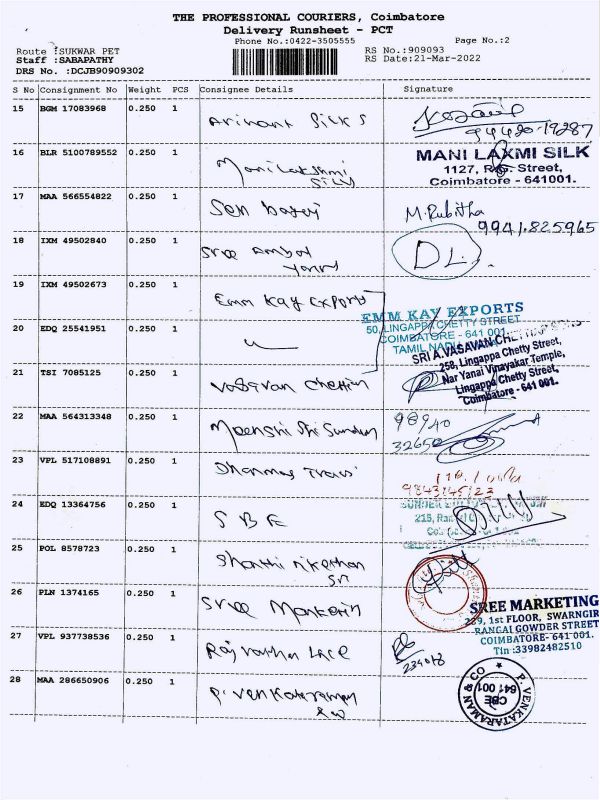 THE PROFESSIONAL COURIERS, Coimbatore
Delivery Runsheet - PCT
Phone No.:0422-3505555
Page No.:2
Route :SUKWAR PET
RS No.:909093
Staff :SABAPATHY
RS Date:21-Mar-2022
DRS No. :DCJB90909302
S No Consignment No Weight PCS Consignee Details Signature
15 BGM 17083968 0.250 1 Arihant Silks
94420-19287
16 BLR 5100789552 0.250 1 Mani Lakshmi
Silk
MANI LAXMI SILK
1127, R.G. Street,
Coimbatore - 641001.
17 MAA 566554822 0.250 1 Sen
M. Rubitha
9941.825965
18 IXM 49502840 0.250 1 Sree
19 IXM 49502673 0.250 1 Emm Kay Exports
EMM KAY EXPORTS
50, LINGAPPA CHETTY STREET
COIMBATORE - 641 001
TAMIL
20 EDQ 25541951 0.250 1
SRI A. VASAVAN
258, Lingappa Chetty Street,
Nar Yanai Vinayakar Temple,
Lingappa Chetty Street,
Coimbatore - 641 001.
21 TSI 7085125 0.250 1 Vasavan Chettiar
22 MAA 564313348 0.250 1 Sri
98940
32650
23 VPL 517108891 0.250 1
9843145123
24 EDQ 13364756 0.250 1
215,
25 POL 8578723 0.250 1 Shanthi
26 PLN 1374165 0.250 1 Sree
SREE MARKETING
1st FLOOR,
RANGAI GOWDER STREET
COIMBATORE- 641 001.
Tin :33982482510
27 VPL 937738536 0.250 1 Lace
28 MAA 286650906 0.250 1 P. Venkataraman
P. VENKATARAMAN & CO
CBE
641 001